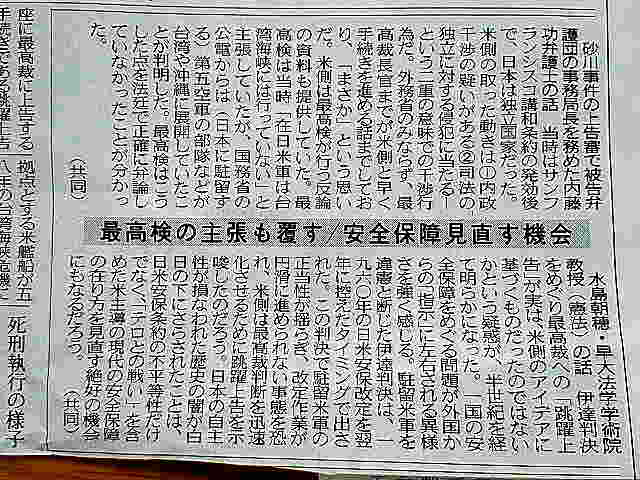 砂川事件の上告審で被告弁
護団の事務局長を務めた内藤
功弁護士の話 当時はサンフ
ランシスコ講和条約の発効後
で、日本は独立国家だった。
米側の取った動きは①内政
干渉の疑いがある②司法の
独立に対する侵犯に当たる―
という二重の意味での干渉行
為だ。外務省のみならず、最
高裁長官までが米側と早く
手続きを進める話までしてお
り、「まさか」という思い
だ。米側は最高検が行う反論
の資料も提供していた。最
高検は当時、「在日米軍は台
湾海峡には行っていない」と
主張していたが、国務省の
公電からは(日本に駐留す
る)第五空軍の部隊などが
台湾や沖縄に展開していたこ
とが判明した。最高検はこう
した点を法廷で正確に弁論し
ていなかったことが分かっ
た。
(共同)
最高検の主張も覆す/安全保障見直す機会
水島朝穂・早大法学学術院
教授(憲法)の話 伊達判決
をめぐり最高裁への「跳躍上
告」が実は、米側のアイデアに
基づくものだったのではない
かという疑惑が、半世紀を経
て明らかになった。一国の安
全保障をめぐる問題が外国か
らの「指示」に左右される異様
さを強く感じる。駐留米軍を
違憲と断じた伊達判決は、一
九六〇年の日米安保改定を翌
年に控えたタイミングで出さ
れた。この判決で駐留米軍の
正当性が揺らぎ、改定作業が
円滑に進められない事態を恐
れ、米側は最高裁判断を迅速
化させるために跳躍上告を示
唆したのだろう。日本の自主
性が損なわれた歴史の闇が白
日の下にさらされたことは、
日米安保条約の不平等性だけ
でなく、「テロとの戦い」を含
めた米主導の現代の安全保障
の在り方を見直す絶好の機会
にもなるだろう。
(共同)
座に最高裁に上告する
手続きである跳躍上告
拠点とする米艦船が五
八年の台湾海峡危機に
死刑執行の様子